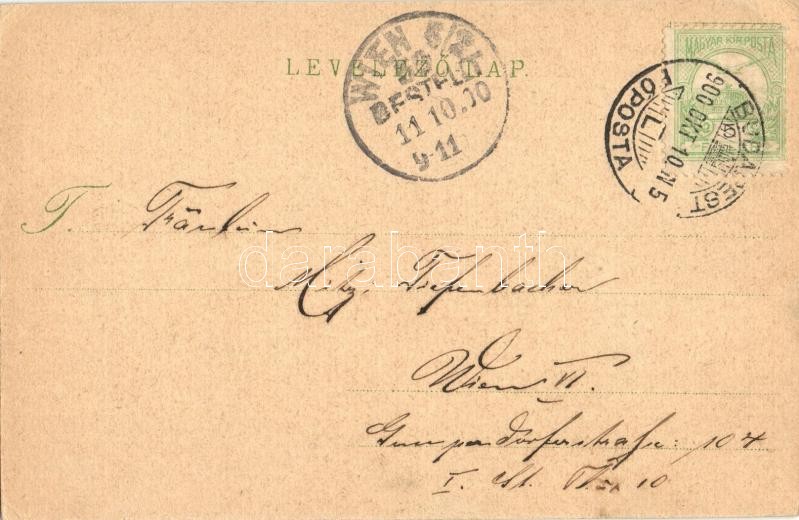 LEVELEZŐ LAP.
WIEN 6/2
BESTELLT
11.10.00
9-11
MAGYAR KIR. POSTA
BUDAPEST
FŐPOSTA
900 OKT 10 N 5
T. Fräulein
darabanth
Mitzi Tiefenbacher
Wien VI.
Gumpendorferstrasse: 104
I. St. Th. 10